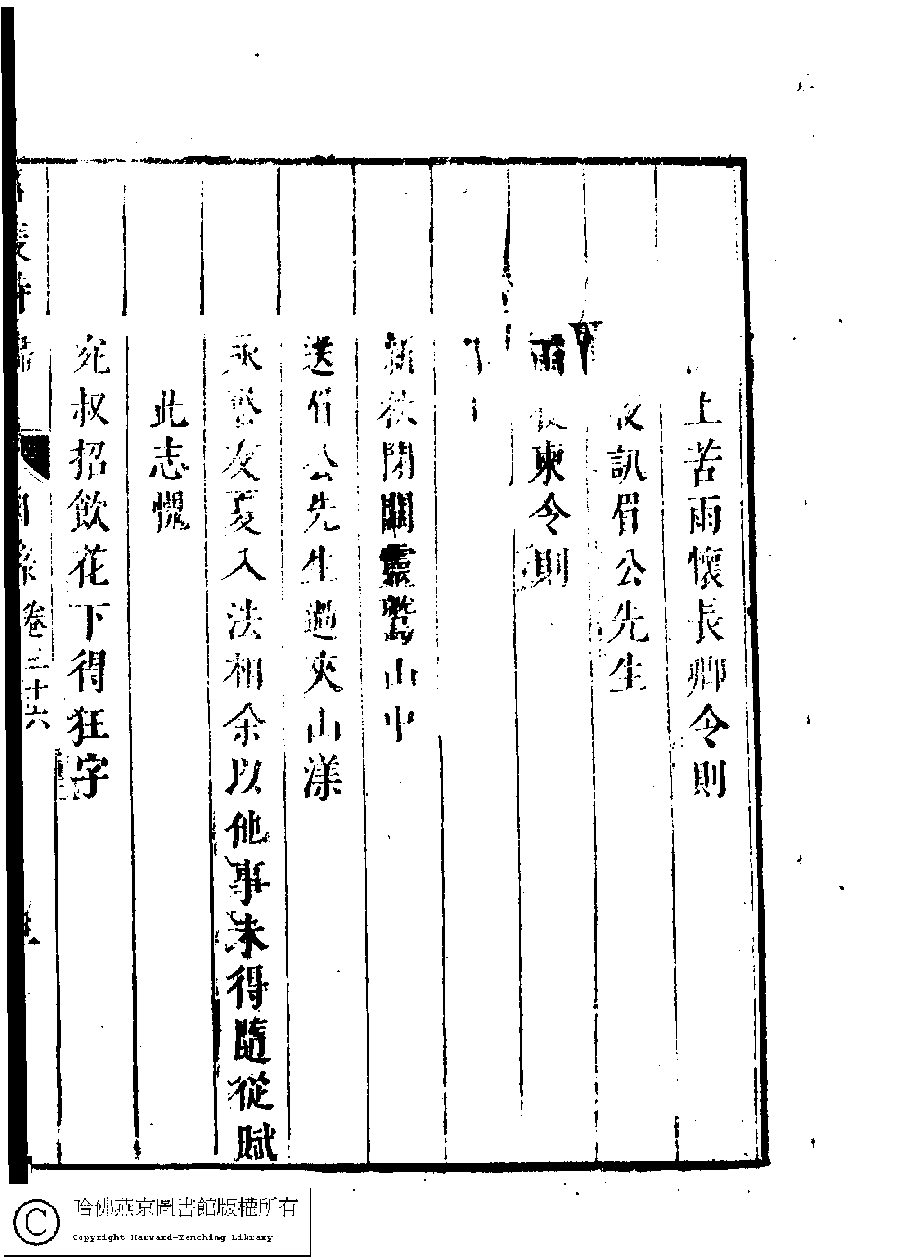 上苦雨懷長卿令則
訊眉公先生
雨後柬令則
新秋閉關靈鷲山中
送眉公先生過夾山漾
眾啓友夏入法相余以他事未得隨從賦
此志愧
宛叔招飲花下得狂字
目錄 卷三十六
哈佛燕京圖書館版權所有
Copyright Harvard-Yenching Library